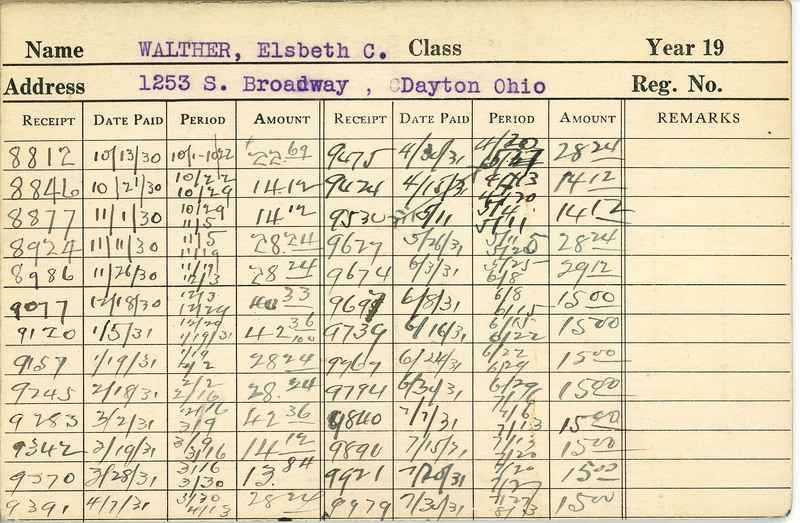 Name WALTHER, Elsbeth C. Class Year 19
Address 1253 S. Broadway , Dayton Ohio Reg. No.
RECEIPT DATE PAID PERIOD AMOUNT RECEIPT DATE PAID PERIOD AMOUNT REMARKS
8812 10/13/30 10/1-10/22 22.69 9475 4/30/31 4/20 4/27 28 24
8846 10/21/30 10/22 10/29 14 12 9424 4/15/31 4/13 4/20 14 12
8877 11/1/30 10/29 11/5 14 12 9530 5/11 5/4 5/11 14 12
8924 11/11/30 11/5 11/19 28.24 9627 5/26/31 5/11 5/25 28 24
8986 11/26/30 11/19 12/3 28 24 9674 6/3/31 5/25 6/8 29 12
9077 12/18/30 12/3 12/29 33 9697 6/8/31 6/8 6/15 15 00
9120 1/5/31 12/29 1/19/31 42 36/100 9739 6/16/31 6/15 6/22 15 00
9157 1/19/31 1/19 2/2 28 24 9767 6/24/31 6/22 6/29 15 00
9245 2/18/31 2/2 2/16 28.24 9794 6/30/31 6/29 7/6 15 00
9283 3/2/31 2/16 3/9 42 36 9840 7/7/31 7/6 7/13 15 00
9342 3/19/31 3/9 3/16 14 12 9890 7/15/31 7/13 7/20 15 00
9370 3/28/31 3/16 3/30 13.84 9921 7/20/31 7/20 7/27 15 00
9391 4/7/31 3/30 4/13 28 24 9979 7/30/31 7/27 8/3 15 00